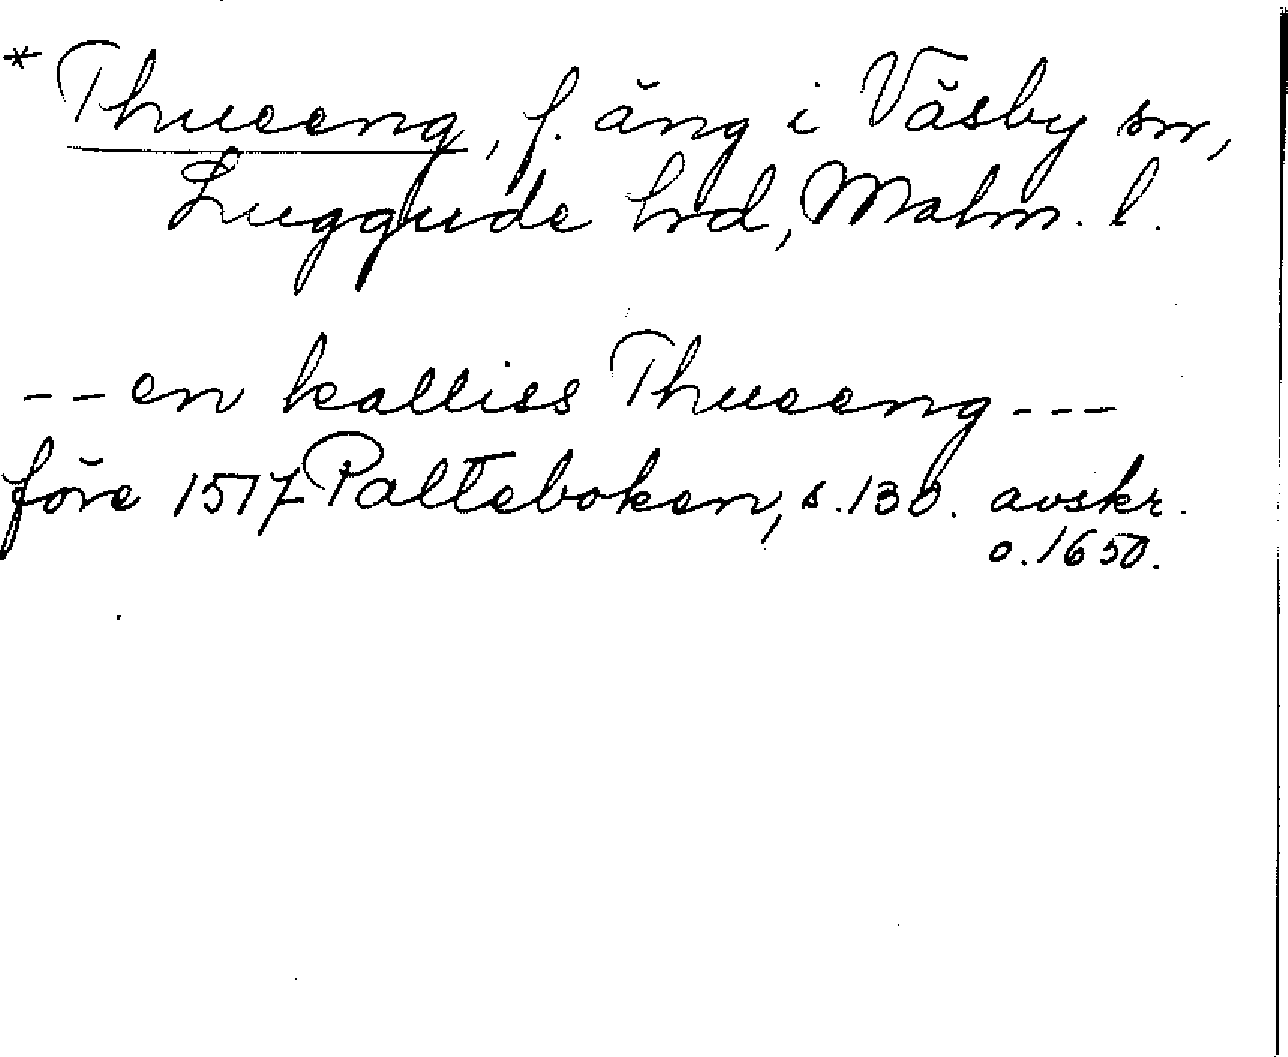 * Thueeng, f. äng i Väsby sn,
Luggude hrd, Malm. l.
-- en kalliss Thueeng ---
före 1517 Palteboken, s. 130. avskr.
o. 1650.